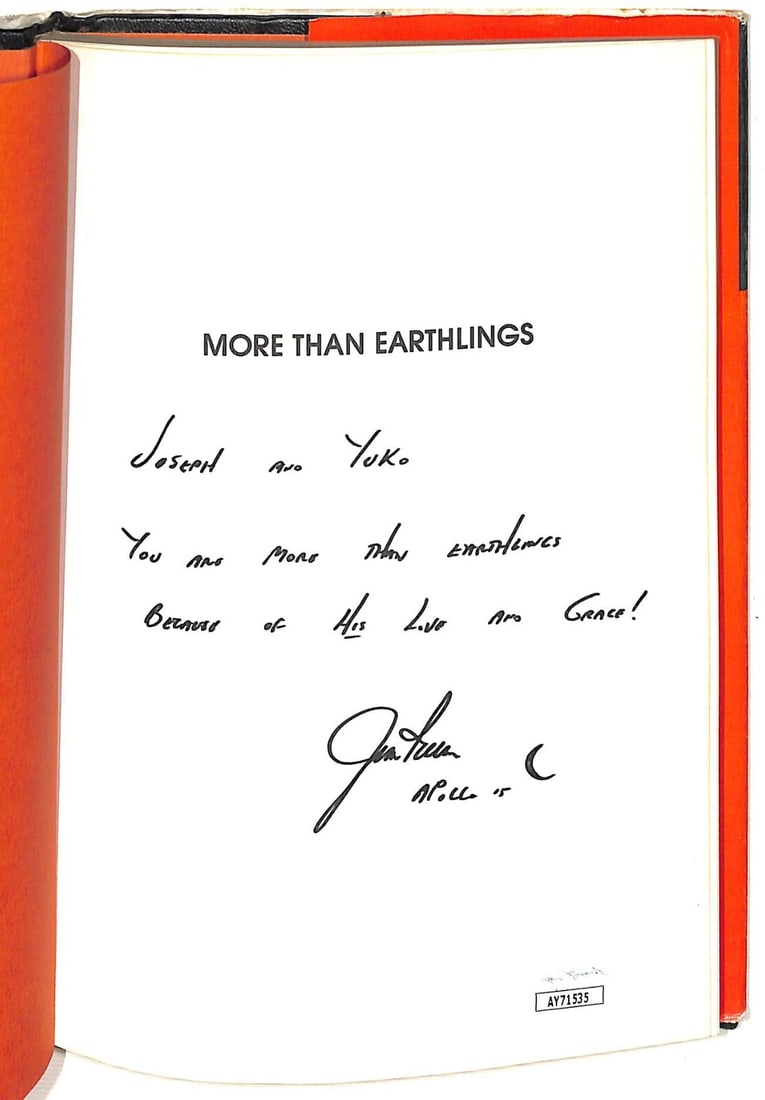 MORE THAN EARTHLINGS
Joseph and Yuko
You are more than earthlings
Because of His Love and Grace!
Jim Irwin
Apollo 15
AY71535